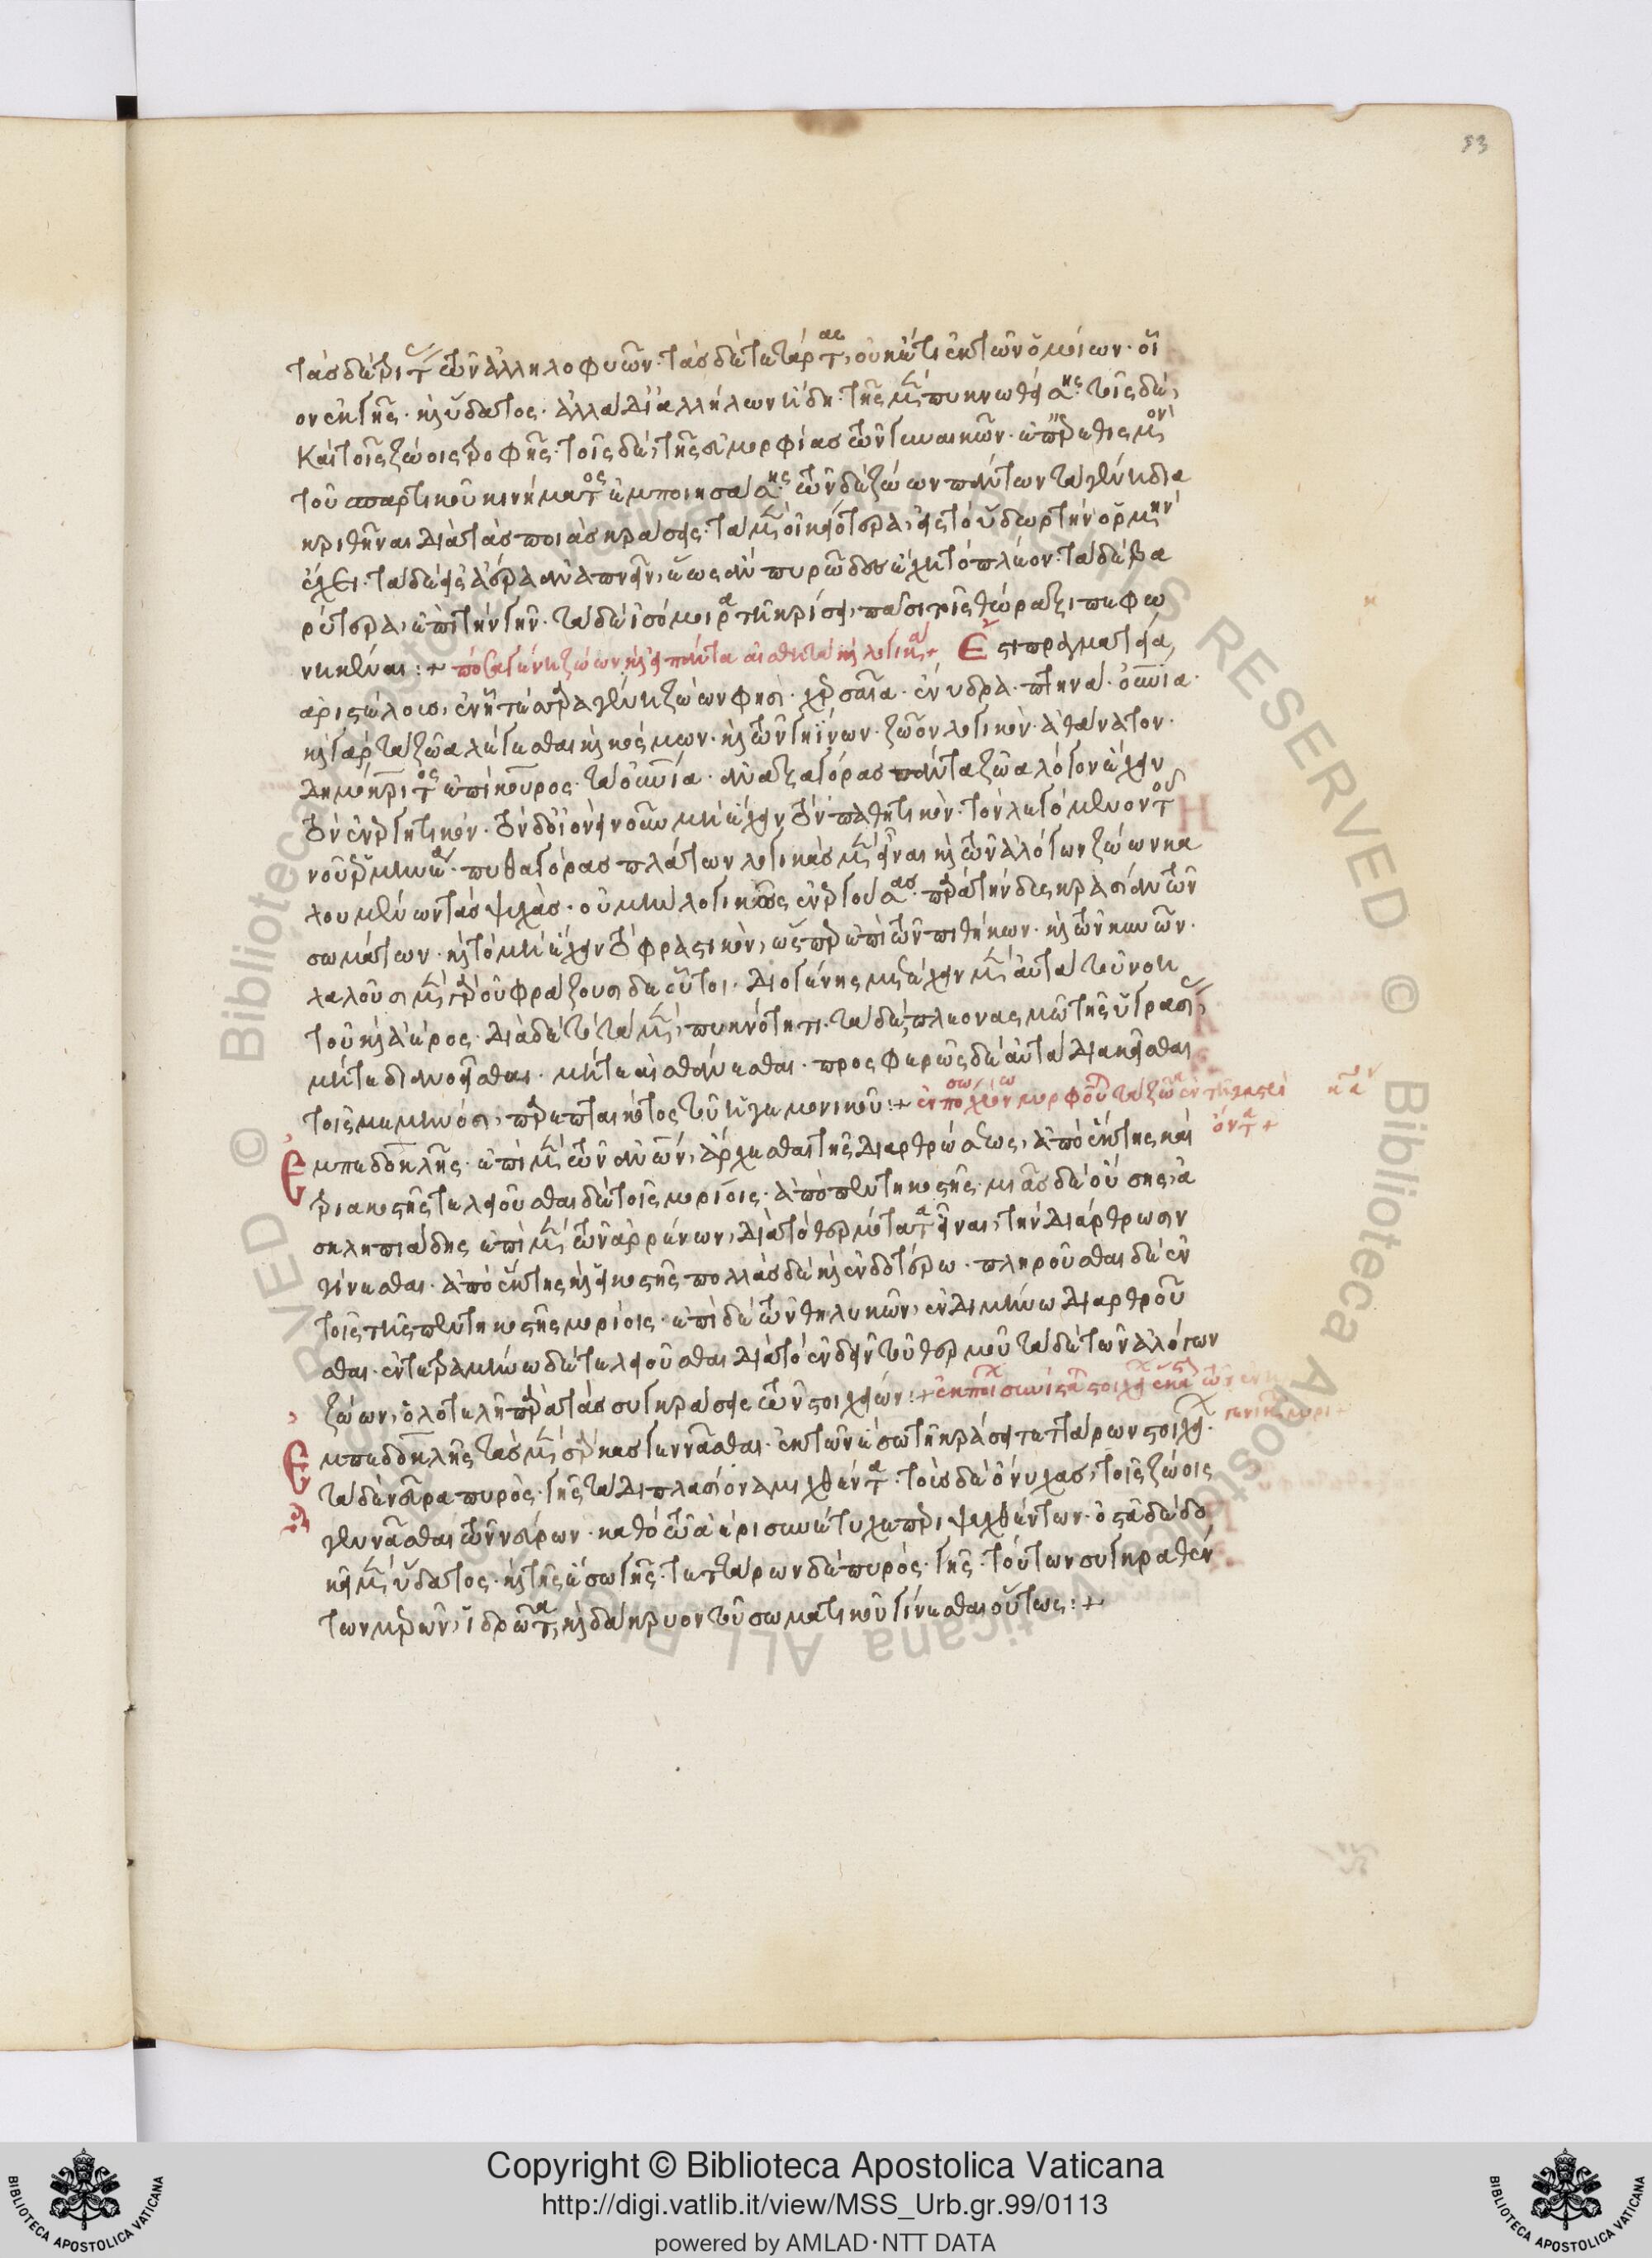 τὰς δὲ τρίτας τῶν ἀλληλοφυῶν· τὰς δὲ τετάρτας, οὐκέτι ἐκ τῶν ὁμοίων· οἷ
ον ἐκ γῆς· καὶ ὕδατος· ἀλλὰ δι' ἀλλήλων ἤδη· τῆς μὲν πυκνωθείσης· τοῖς δὲ,
καὶ τοῖς ζώοις τροφῆς· τοῖς δὲ, τῆς εὐμορφίας τῶν γυναικῶν· ἐπερεθισμὸν
τοῦ σπαρτικοῦ κινήματος ἐμποιησάσης· τῶν δὲ ζώων πάντων τὰ γένη δια
κριθῆναι διὰ τὰς ποιὰς κράσεις· τὰ μὲν οἰκειότερα, εἰς τὸ ὕδωρ τὴν ὁρμὴν
ἔχει· τὰ δὲ εἰς ἀέρα ἀναπνεῖν, ἕως ἂν πυρῶδες ἔχη τὸ πλέον· τὰ δὲ βα
ρύτερα, ἐπὶ τὴν γῆν· τὰ δὲ ἰσόμοιρα τῆ κρίσει, πᾶσι τοῖς θώραξι πεφω
νηκέναι:+ πόσα γένη ζώων καὶ εἰ πάντα αἰσθητὰ καὶ λογικά+ Ἔστι πραγματεία
ἀριστοτέλους, ἐν ἧ τέσσαρα γένη ζώων φησὶ· χερσαῖα· ἔνυδρα· πτηνά· οὐράνια·
καὶ γὰρ τὰ ζῶα λέγεσθαι καὶ κόσμον· καὶ τῶν γηΐνων· ζῶον λογικὸν· ἀθάνατον·
δημόκριτος ἐπίκουρος· τὰ οὐράνια· ἀναξαγόρας πάντα ζῶα λόγον ἔχειν
τὸν ἐνεργητικὸν· τὸν δ' οἱονεὶ νοῦν μὴ ἔχειν τὸν παθητικὸν· τὸν λεγόμενον τοῦ
νοῦ ἑρμηνέα· πυθαγόρας πλάτων λογικὰς μὲν εἶναι καὶ τῶν ἀλόγων ζώων κα
λουμένων τὰς ψυχάς· οὐ μὴν λογικῶς ἐνεργούσας· παρὰ τὴν δυσκρασίαν τῶν
σωμάτων· καὶ τὸ μὴ ἔχειν τὸ φραστικὸν, ὥσπερ ἐπὶ τῶν πιθήκων· καὶ τῶν κυνῶν·
λαλοῦσι μὲν γὰρ οὐ φράζουσι δὲ οὗτοι· διογένης μετέχειν μὲν αὐτὰ τοῦ νοη
τοῦ καὶ ἀέρος· διὰ δὲ τὸ τὰ μὲν, πυκνότητι· τὰ δὲ, πλεονασμῶ τῆς ὑγρασίας,
μήτε διανοεῖσθαι· μήτε αἰσθάνεσθαι· προσφερῶς δὲ αὐτὰ διακεῖσθαι
τοῖς μεμηνόσι, παρεπταικότος τοῦ ἡγεμονικοῦ:+ ἐν πόσω χρόνω μορφοῦται τὰ ζῶα ἐν τῆ γαστρὶ
ὄντα+
Ἐμπεδοκλῆς· ἐπὶ μὲν τῶν ἀνθρώπων, ἄρχεσθαι τῆς διαρθρώσεως, ἀπὸ ἕκτης καὶ
τριακοστῆς τελειοῦσθαι δὲ τοῖς μορίοις· ἀπὸ πεντηκοστῆς· μιᾶς δὲ οὔσης, ἀ
σκληπιάδης ἐπὶ μὲν τῶν ἀρρένων, διὰ τὸ θερμότατα εἶναι, τὴν διάρθρωσιν
γίνεσθαι· ἀπὸ ἕκτης καὶ εἰκοστῆς πολλὰς δὲ καὶ ἐνδοτέρω· πληροῦσθαι δὲ ἐν
τοῖς τῆς πεντηκοστῆς μορίοις· ἐπὶ δὲ τῶν θηλυκῶν, ἐν διμήνω διαρθροῦ
σθαι· ἐν τετραμήνω δὲ τελειοῦσθαι διὰ τὸ ἐνδεὴν τοῦ θερμοῦ τὰ δὲ τῶν ἀλόγων
ζώων, ὁλοτελῆ παρὰ τὰς συγκράσεις τῶν στοιχείων:+
Ἐμπεδοκλῆς τὰς μὲν σάρκας γεννᾶσθαι· ἐκ τῶν ἔσω τῆ κράσει τεττάρων στοιχείων·
τὰ δὲ νεῦρα πυρὸς· γῆς τὰ διπλασίονα μιχθέντα· τοὺς δὲ ὄνυχας, τοῖς ζώοις
γεννᾶσθαι τῶν νεύρων· καθὸ τῶ ἀέρι συνέτυχε περιψυχθέντων· ὀστᾶ δὲ δο
κεῖ μὲν ὕδατος· καὶ τῆς ἔσω γῆς· τεττάρων δὲ πυρὸς· γῆς· τούτων συγκραθέν
των μερῶν, ἱδρῶτα, καὶ δάκρυον τοῦ σωματικοῦ γίνεσθαι οὕτως:+
Copyright © Biblioteca Apostolica Vaticana
http://digi.vatlib.it/view/MSS_Urb.gr.99/0113
powered by AMLAD·NTT DATA